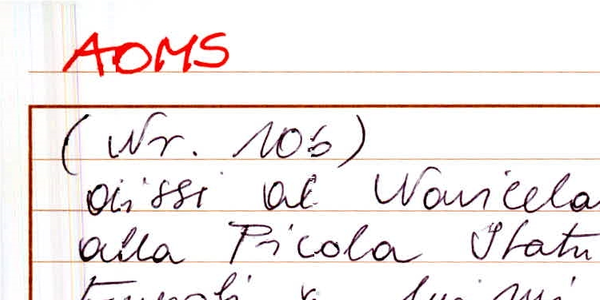 AOMS
(Nr. 106)
dissi al Navicela
alla Picola Statu